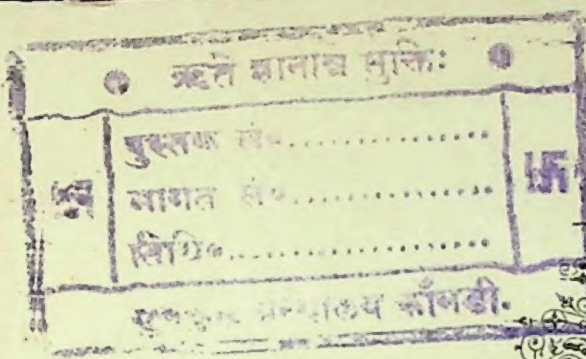 ऋते ज्ञानान्न मुक्तिः
पुस्तक सं०................
आगत सं०................
तिथि०......................
गुरुकुल ग्रन्थालय काँगड़ी.